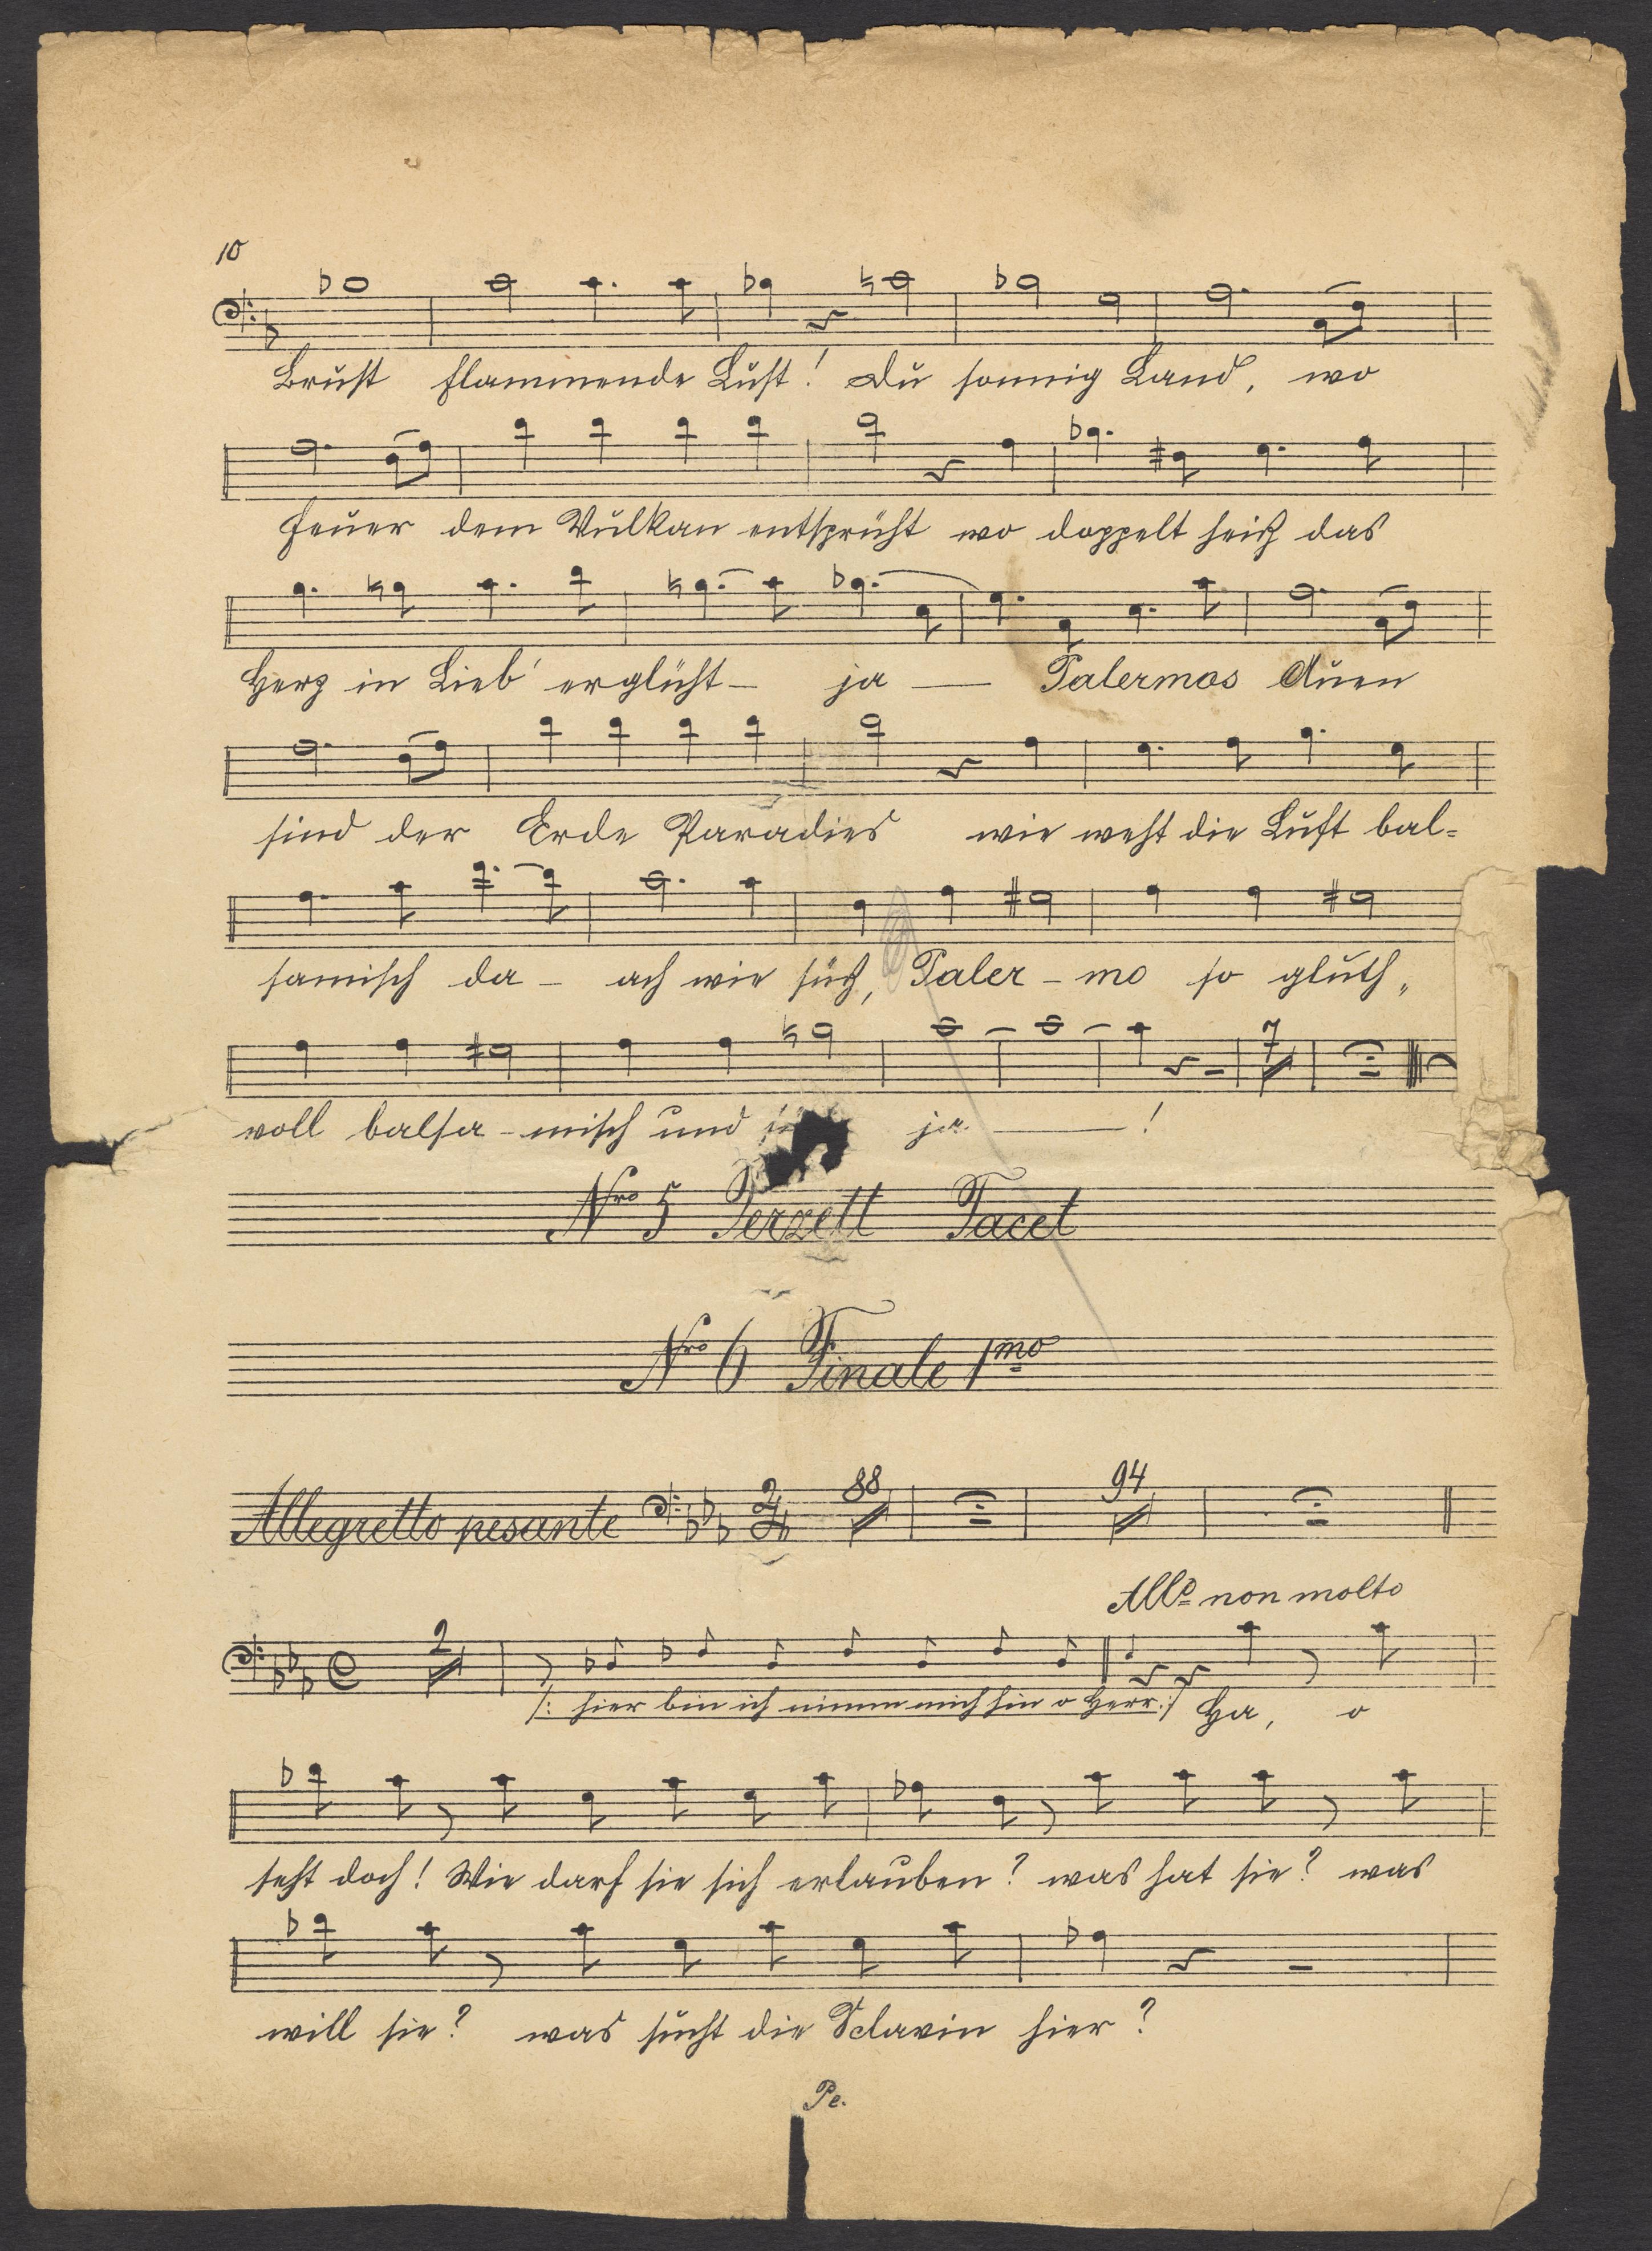 10
Brust flammende Lust! Du sonnig Land, wo
Feuer dem Vulkan entsprüht wo doppelt heiß das
Herz in Lieb' erglüht – ja — Palermos Auen
sind der Erde Paradies wie weht die Luft bal-
samisch da – ach wie süß, Paler-mo so gluth„
7
voll balsa-misch und ja — !
Nro 5 Terzett Tacet
Nro 6 Finale 1mo
Allegretto pesante 2/4 88 94
Allo non molto
2
/: hier bin ich nimm mich hin o Herr :/ Ha, o
seht doch! Wie darf sie sich erlauben? was hat sie? was
will sie? was sucht die Sclavin hier?
Pe.